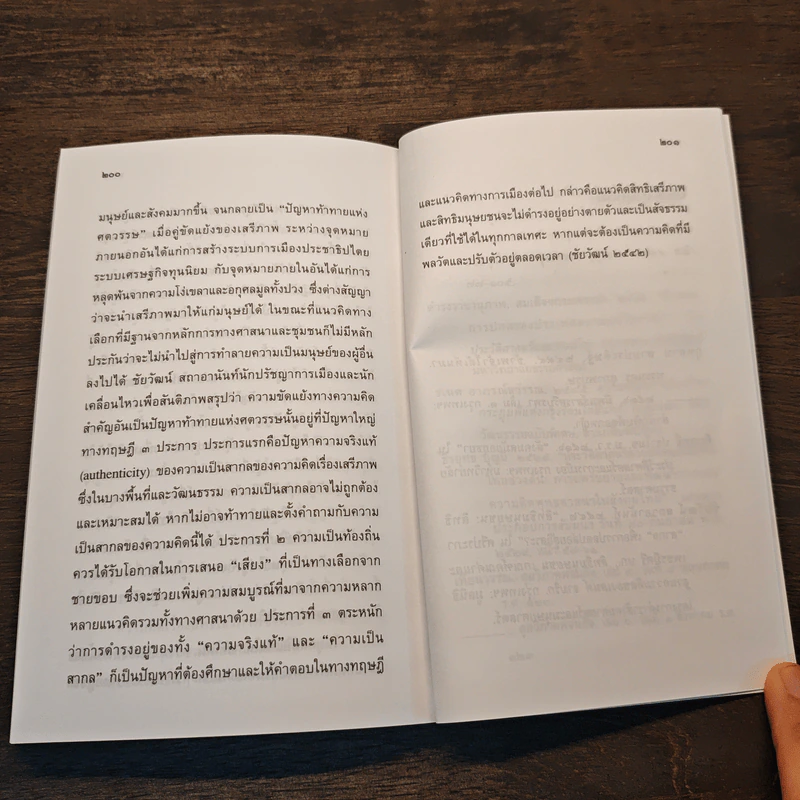 ๒๐๐
มนุษย์และสังคมมากขึ้น จนกลายเป็น “ปัญหาท้าทายแห่ง
ศตวรรษ” เมื่อคู่ขัดแย้งของเสรีภาพ ระหว่างจุดหมาย
ภายนอกอันได้แก่การสร้างระบบการเมืองประชาธิปไตย
ระบบเศรษฐกิจทุนนิยม กับจุดหมายภายในอันได้แก่การ
หลุดพ้นจากความโง่เขลาและอกุศลมูลทั้งปวง ซึ่งต่างสัญญา
ว่าจะนำเสรีภาพมาให้แก่มนุษย์ได้ ในขณะที่แนวคิดทาง
เลือกที่มีฐานจากหลักการทางศาสนาและชุมชนก็ไม่มีหลัก
ประกันว่าจะไม่นำไปสู่การทำลายความเป็นมนุษย์ของผู้อื่น
ลงไปได้ ชัยวัฒน์ สถาอานันท์นักปรัชญาการเมืองและนัก
เคลื่อนไหวเพื่อสันติภาพสรุปว่า ความขัดแย้งทางความคิด
สำคัญอันเป็นปัญหาท้าทายแห่งศตวรรษนั้นอยู่ที่ปัญหาใหญ่
ทางทฤษฎี ๓ ประการ ประการแรกคือปัญหาความจริงแท้
(authenticity) ของความเป็นสากลของความคิดเรื่องเสรีภาพ
ซึ่งในบางพื้นที่และวัฒนธรรม ความเป็นสากลอาจไม่ถูกต้อง
และเหมาะสมได้ หากไม่อาจท้าทายและตั้งคำถามกับความ
เป็นสากลของความคิดนี้ได้ ประการที่ ๒ ความเป็นท้องถิ่น
ควรได้รับโอกาสในการเสนอ “เสียง” ที่เป็นทางเลือกจาก
ชายขอบ ซึ่งจะช่วยเพิ่มความสมบูรณ์ที่มาจากความหลาก
หลายแนวคิดรวมทั้งทางศาสนาด้วย ประการที่ ๓ ตระหนัก
ว่าการดำรงอยู่ของทั้ง “ความจริงแท้” และ “ความเป็น
สากล” ก็เป็นปัญหาที่ต้องศึกษาและให้คำตอบในทางทฤษฎี
๒๐๑
และแนวคิดทางการเมืองต่อไป กล่าวคือแนวคิดสิทธิเสรีภาพ
และสิทธิมนุษยชนจะไม่ดำรงอยู่อย่างตายตัวและเป็นสัจธรรม
เดียวที่ใช้ได้ในทุกกาลเทศะ หากแต่จะต้องเป็นความคิดที่มี
พลวัตและปรับตัวอยู่ตลอดเวลา (ชัยวัฒน์ ๒๕๔๒)